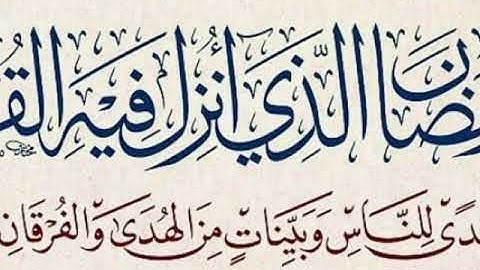 ضَانَ الَّذِي أُنْزِلَ فِيهِ الْقُ
دًى لِلنَّاسِ وَبَيِّنَاتٍ مِنَ الْهُدَىٰ وَالْفُرْقَانِ